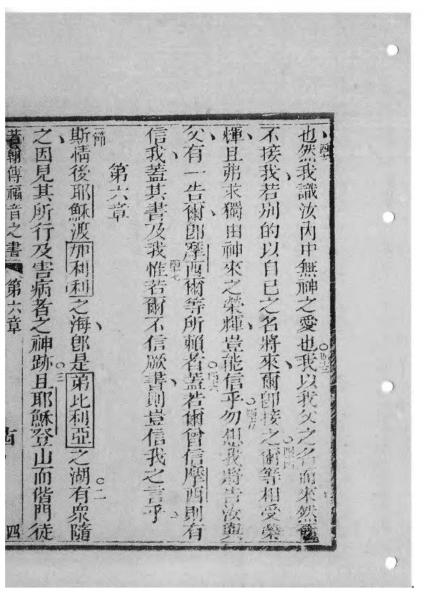 也然我識汝內中無神之愛也我以我父之名而來然爾
不接我若別的以自己之名將來爾即接之爾等相受榮
輝且弗求獨由神來之榮輝豈能信乎勿想我將告汝與
父有一告爾即摩西爾等所賴者蓋若爾曾信摩西則有
信我蓋其書及我惟若爾不信厥書則豈信我之言乎
第六章
斯情後耶穌渡加利利之海即是弟比利亞之湖有眾隨
之因見其所行及害病者之神跡且耶穌登山而偕門徒
若翰傳福音之書 第六章 四